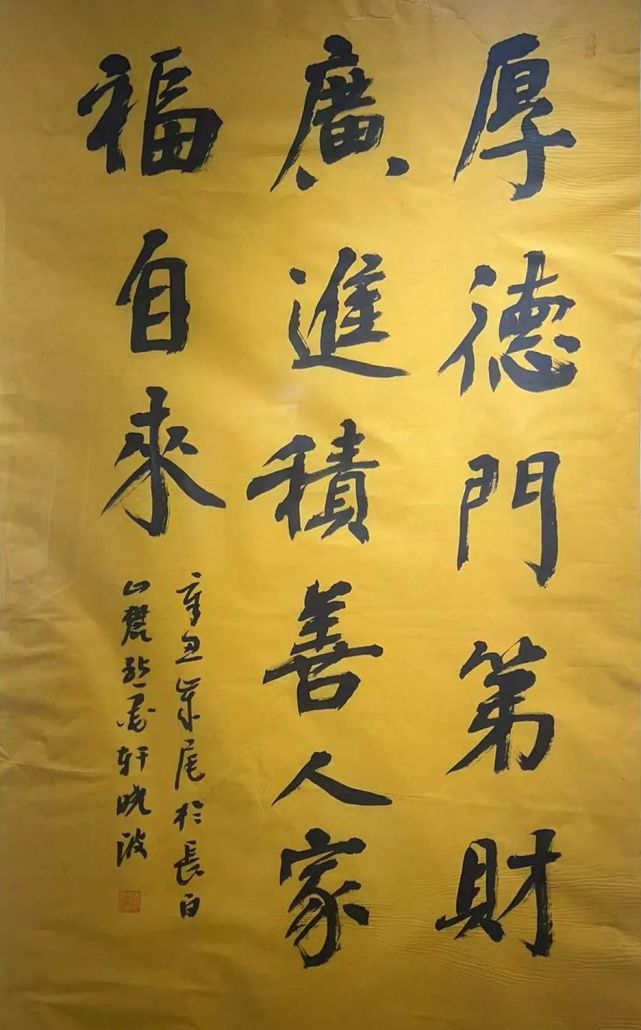 厚德門第財
廣進積善人家
福自來
辛丑歲尾於長白
山麓墨軒曉波